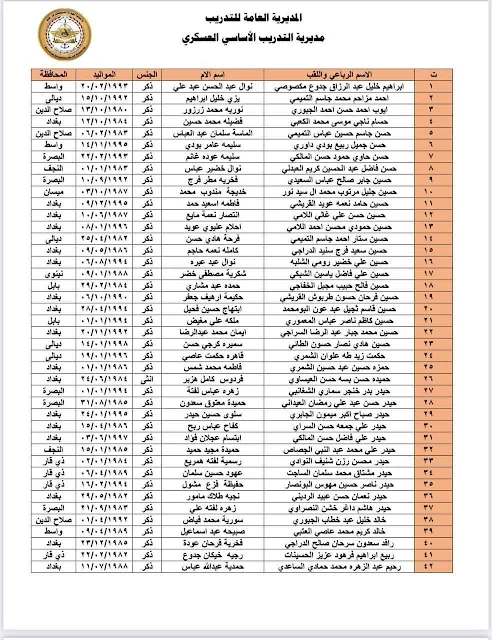 المديرية العامة للتدريب
مديرية التدريب الأساسي العسكري
ت الاسم الرباعي واللقب اسم الام الجنس المواليد المحافظة
١ ابراهيم خليل عبد الرزاق جدوع مكصوصي نوال عبد الحسن عبد علي ذكر ٢٠/٠٢/١٩٩٣ واسط
٢ احمد مزاحم محمد جاسم التميمي يزي خليل ابراهيم ذكر ١٥/١٠/١٩٩٢ ديالى
٣ ايوب احمد حسن احمد الجبوري نوريه محمد زرزور ذكر ١٣/١٠/١٩٨٠ صلاح الدين
٤ حسام ناجي موسى محمد الكعبي فضيله محمد حسين ذكر ١٢/١٠/١٩٨٤ بغداد
٥ حسن جاسم حسين عباس التميمي الماسة سلمان عبد العباس ذكر ٠٦/٠٢/١٩٨٣ صلاح الدين
٦ حسن جميل ربيع بودي داوري سليمه عامر بودي ذكر ١٤/١١/١٩٩٥ واسط
٧ حسن حاوي حمود حسن المالكي سليمه عوده غانم ذكر ٢٢/٠٢/١٩٩٣ البصرة
٨ حسن فاضل عبد الحسين كريم العبدلي نوال خضير عباس ذكر ٠١/٠١/١٩٨٣ النجف
٩ حسين جابر صالح عباس السعيدي فخريه مطر فرج ذكر ١٠/٠٥/١٩٩٢ البصرة
١٠ حسين جليل مرتوب محمد ال سيد نور خديجة مندوب محمد ذكر ٠٣/١٠/١٩٨٧ ميسان
١١ حسين حامد نعمه عويد القريشي فاطمه اسعيد حمد ذكر ٠٩/١٢/١٩٩٥ بغداد
١٢ حسين حسن علي غالي اللامي انتصار نعمة مايع ذكر ١٠/٠٦/١٩٨٧ بغداد
١٣ حسين حمودي محسن احمد اللامي احلام عليوي عويد ذكر ٠٨/٠١/١٩٩٦ بغداد
١٤ حسين ستار احمد جاسم التميمي فرحة هادي حسن ذكر ٢٥/٠٤/١٩٨٢ ديالى
١٥ حسين سعيد فرج سنيد الدراجي كامله نعمه حاجم ذكر ٠٩/٠٥/١٩٨٦ بغداد
١٦ حسين علي خضير رومي الشبله نوال عبد عبره ذكر ٠٦/٠٨/١٩٩٤ بغداد
١٧ حسين علي فاضل ياسين الشبكي شكرية مصطفى خضر ذكر ٠٩/٠١/١٩٨٨ نينوى
١٨ حسين فالح حبيب مجبل الخفاجي حمده عبد مشاري ذكر ٢٩/٠٢/١٩٨٤ بابل
١٩ حسين فرحان حسون طربوش القريشي حكيمة ارهيف جعفر ذكر ٠٦/١٠/١٩٩٠ بغداد
٢٠ حسين قاسم ثجيل عبد عون البومحمد ابتهاج حسين فحيل ذكر ٢٨/٠٤/١٩٩٤ بغداد
٢١ حسين كاظم ناصر عباس المعموري ملكه علي مغيض ذكر ٠١/٠١/١٩٩٤ بابل
٢٢ حسين محمد جبار عبد الرضا السراجي ايمان محمد عبدالرضا ذكر ٢٠/١١/١٩٩٢ بغداد
٢٣ حسين هادي نصار حسون الطائي سميره كرجي حسن ذكر ١٤/٠٩/١٩٩٤ ديالى
٢٤ حكمت زيد طه علوان الشمري قاهره حكمت عاصي ذكر ١٩/٠١/١٩٩٦ ديالى
٢٥ حمزه حسين عبد حسين الشمري فاطمه محمد شمس ذكر ٠١/٠١/١٩٨٦ بغداد
٢٦ حميده حسن بسه حسن العيساوي فردوس كامل هزبر انثى ٢٤/٠٦/١٩٨٤ بغداد
٢٧ حيدر بدر خنجر سماري الشغانبي زهره عباس لفتة ذكر ٠١/٠٩/١٩٩٤ البصرة
٢٨ حيدر حسن عبد علي رمضان العيداني حميدة معتوق سعدون ذكر ٣١/٠٨/١٩٨٥ البصرة
٢٩ حيدر صباح اكبر ميمون الجابري سلوى حسين حيدر ذكر ٢٤/٠١/١٩٩٥ بغداد
٣٠ حيدر علي جمعه حسن السراي كفاح عباس ربح ذكر ١٥/٠٤/١٩٨٦ بغداد
٣١ حيدر علي فاضل حسن المالكي ابتسام عجلان فؤاد ذكر ٠٣/٠٦/١٩٩٧ بغداد
٣٢ حيدر علي محمد عبد النبي الجصاص حميدة مجيد حميد ذكر ١٥/٠١/١٩٨٢ النجف
٣٣ حيدر محسن رزن شنيف النوادي رسمية لفته همريع ذكر ٠٢/٠١/١٩٨٤ ذي قار
٣٤ حيدر مشتاق محمد سلمان الساجت عهود حسين سلمان ذكر ٠٦/٠٤/١٩٩٤ ذي قار
٣٥ حيدر ناصر حسين مهوس البونصار حفيظة فزع مشول ذكر ١٦/٠٢/١٩٩٤ ذي قار
٣٦ حيدر نعمان حسن عبيد الرديني نجيه طلاك مامور ذكر ٢٩/٠٥/١٩٨٢ بغداد
٣٧ حيدر هاشم داغر خشن النصراوي زهره لفته علي ذكر ٢١/٠٩/١٩٨٣ البصرة
٣٨ خالد خليل عبد خطاب الجبوري سورية محمد فياض ذكر ٠١/٠٤/١٩٩٢ صلاح الدين
٣٩ خالد كريم محمد عاصي العتبي صبيحه عبد اسماعيل ذكر ٠٩/٠٤/١٩٨٩ واسط
٤٠ رافد سعدون سرحان صالح الدراجي فخرية فرحان عودة ذكر ٢٣/١٢/١٩٨٥ بغداد
٤١ ربيع ابراهيم فرهود عزيز الحسينات رجيه خيكان جدوع ذكر ٢٢/٠٢/١٩٨٢ ذي قار
٤٢ رحيم عبد الزهره محمد حمادي الساعدي حمدية عبدالله عباس ذكر ١١/٠٧/١٩٨٨ بغداد